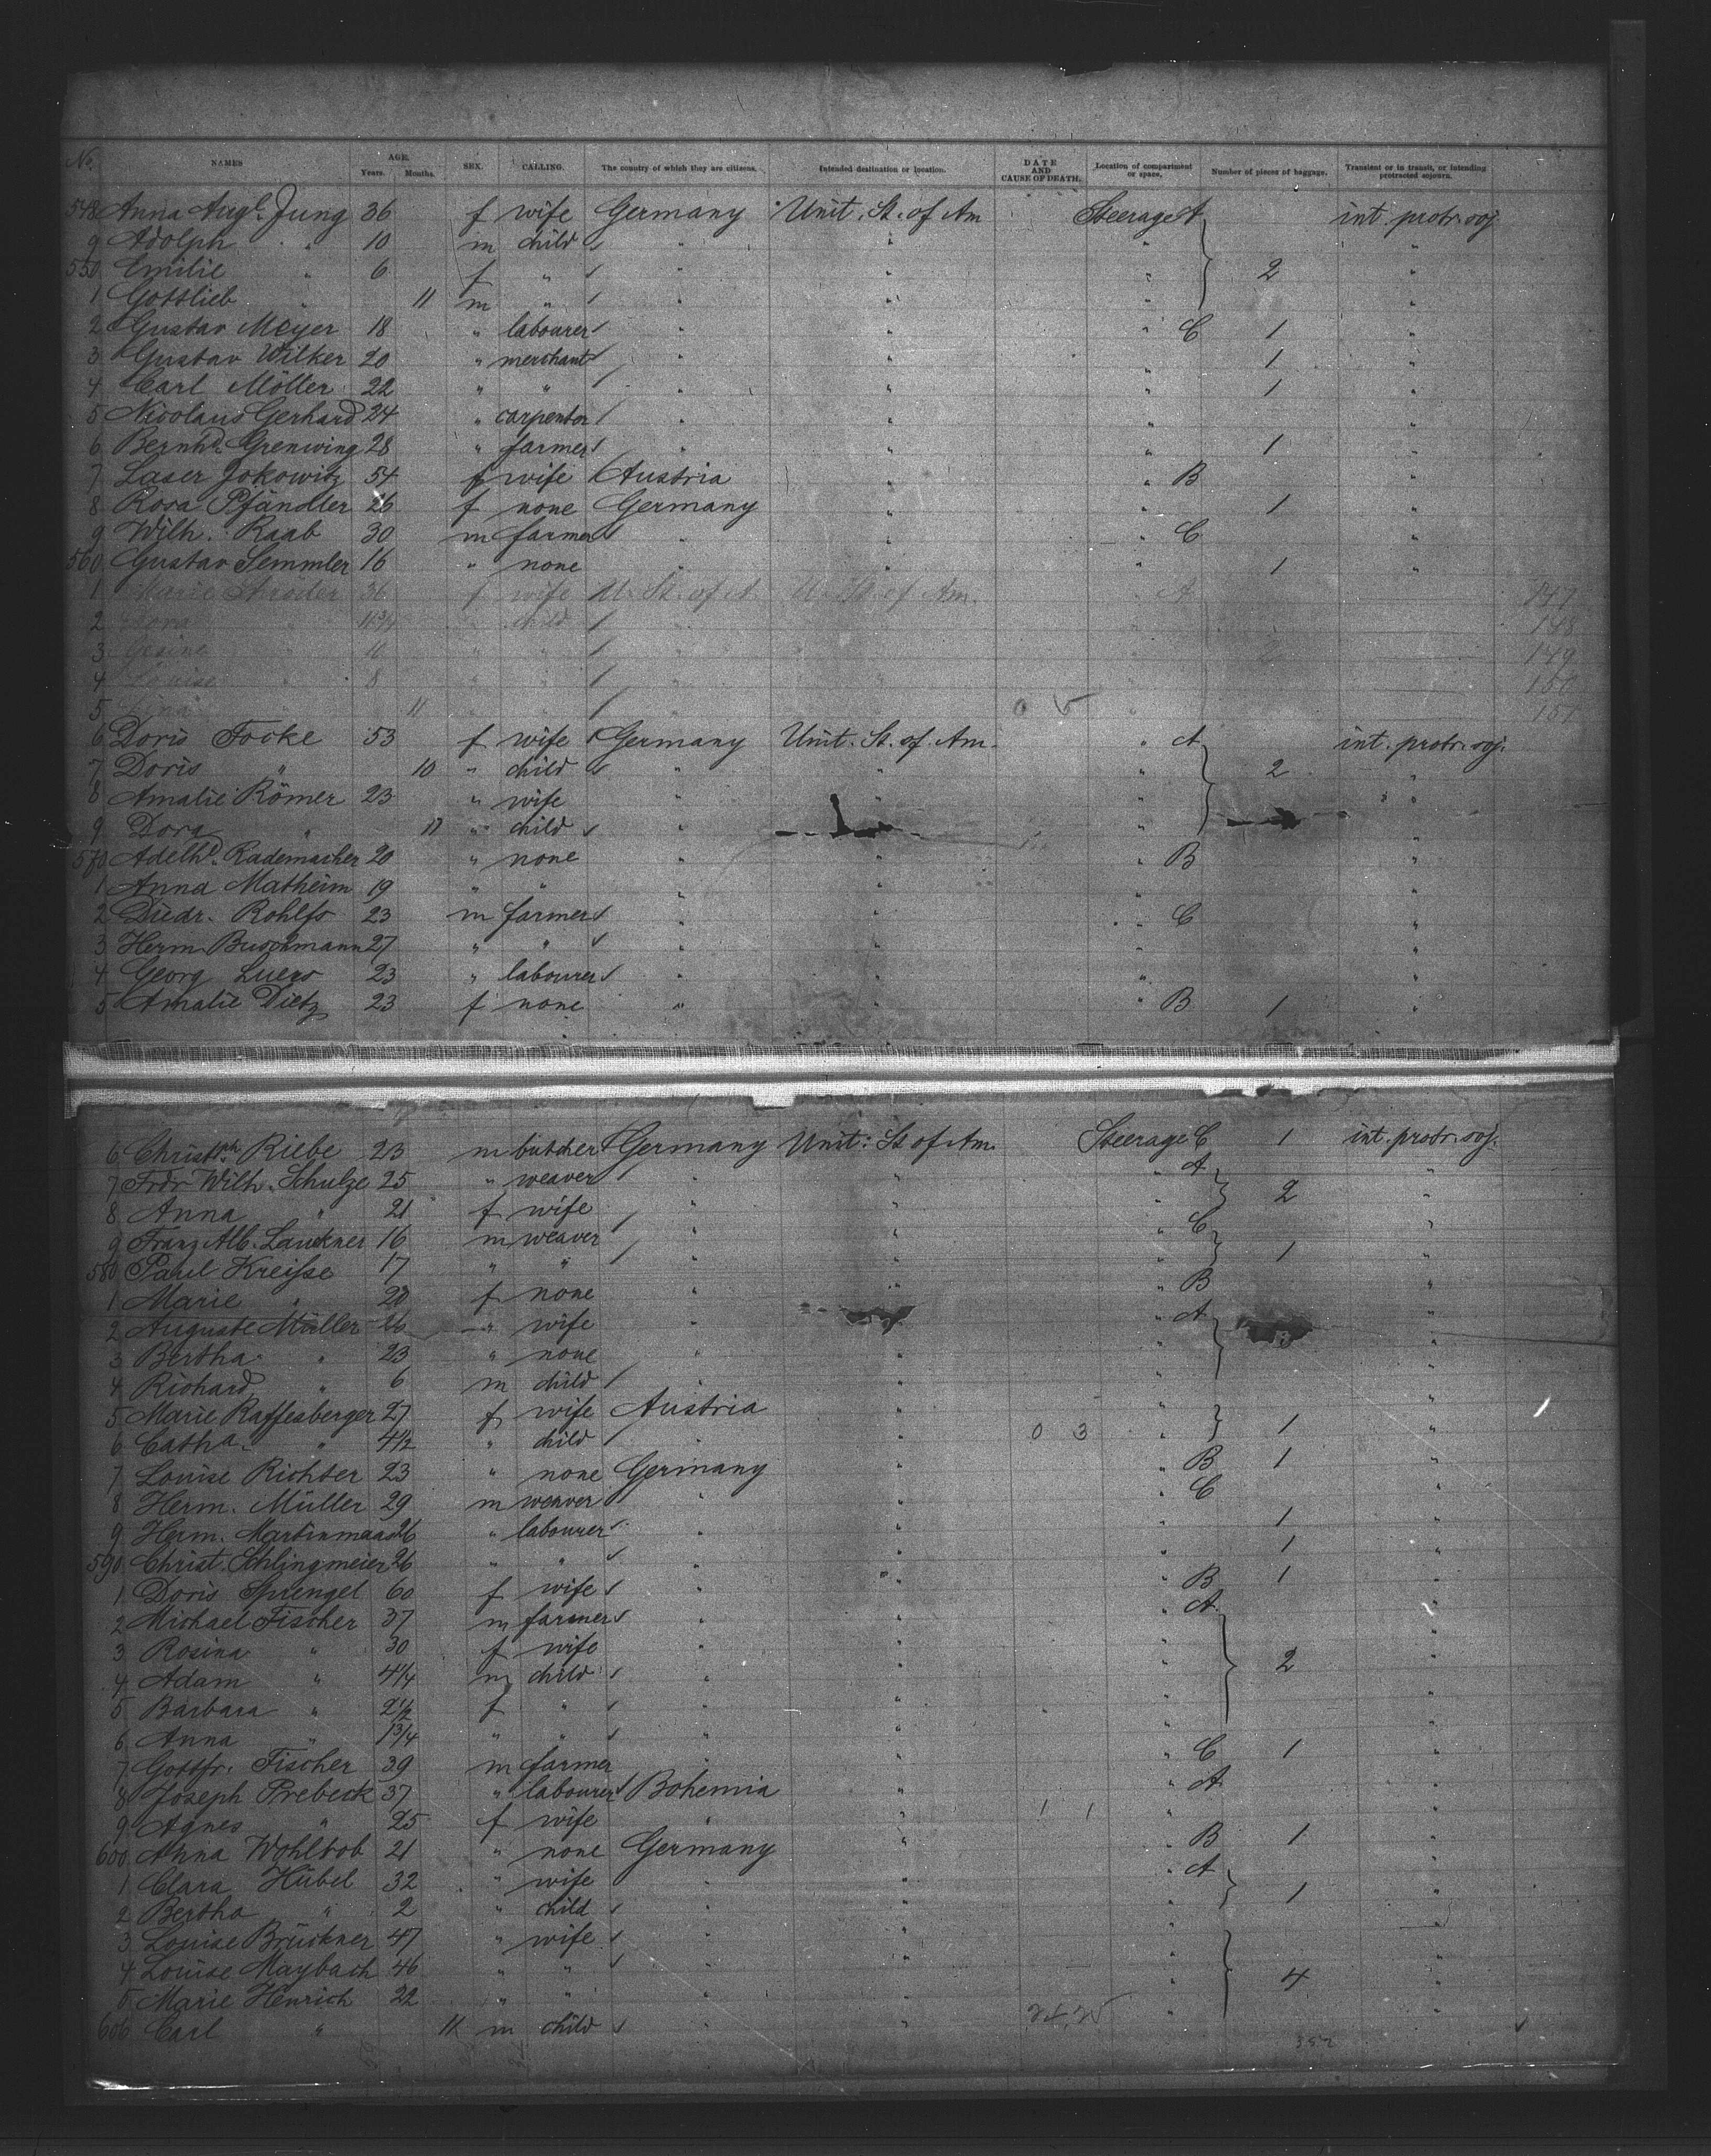 No. NAMES AGE. Years. Months. SEX. CALLING. The country of which they are citizens. Intended destination or location. DATE AND CAUSE OF DEATH. Location of compartment or space. Number of pieces of baggage. Transient or in transit, or intending protracted sojourn.
548 Anna Aug. Jung 36 f wife Germany Unit. St. of Am Steerage A int. protr. soj
9 Adolph " 10 m child " " " "
550 Emilie " 6 f " " " " 2 "
1 Gottlieb " 11 m " " " " "
2 Gustav Meyer 18 " labourer " " " C 1 "
3 Gustav Wilker 20 " merchant " " " 1 "
4 Carl Möller 22 " " " " " 1 "
5 Nicolaus Gerhard 24 " carpenter " " " "
6 Bernhd. Grenwing 28 " farmer " " " 1 "
7 Laser Jokowitz 54 f wife Austria " " B "
8 Rosa Pfändler 26 f none Germany " " 1 "
9 Wilh. Raab 30 m farmer " " " C "
560 Gustav Semmler 16 " none " " " 1 "
1 Marie Ströder 36 f wife U. St. of A. U. St. of Am. A 147
2 " child " 148
3 Gesine " 10 " " " 2 149
4 Louise " 8 " " " " 150
5 " 11 0 5 151
6 Doris Focke 53 f wife Germany Unit. St. of Am. " A int. protr. soj.
7 Doris " 10 " child " " " 2 "
8 Amalie Römer 23 " wife " " " "
9 Dora " 11 " child " " "
570 Adelhd. Rademacher 20 " none " " " B "
1 Anna Matheim 19 " " " " " "
2 Diedr. Rohlfs 23 m farmer " " " C "
3 Herm. Buschmann 27 " " " " " "
4 Georg Luers 23 " labourer " " " "
5 Amalie Dietz 23 f none " " " B 1 "
6 Christoph Riebe 23 m butcher Germany Unit. St of Am. Steerage C 1 int. protr. soj.
7 Frdr Wilh. Schulze 25 " weaver " " " A "
8 Anna " 21 f wife " " " 2 "
9 Franz Alb. Lauckner 16 m weaver " " " C "
580 Paul Kreisse 17 " " " " " 1 "
1 Marie " 20 f none " " " B "
2 Auguste Müller 26 " wife " " A "
3 Bertha " 23 " none " " " "
4 Richard " 6 m child " " " "
5 Marie Raffesberger 27 f wife Austria " " "
6 Catha. " 4½ " child " " 0 3 " 1 "
7 Louise Richter 23 " none Germany " " B 1 "
8 Herm. Müller 29 m weaver " " " C "
9 Herm. Martinmaas 26 " labourer " " " 1 "
590 Christ. Schlingmeier 26 " " " " " 1 "
1 Doris Sprengel 60 f wife " " " B 1 "
2 Michael Fischer 37 m farmer " " " A "
3 Rosina " 30 f wife " " " "
4 Adam " 4¼ m child " " " 2 "
5 Barbara " 2½ f " " " " "
6 Anna " 1¾ " " " " " "
7 Gottfr. Fischer 39 m farmer " " " C 1 "
8 Joseph Prebeck 37 " labourer Bohemia " " A "
9 Agnes " 25 f wife " " 1 1 " "
600 Anna Wohltob 21 " none Germany " " B 1 "
1 Clara Hübel 32 " wife " " " A "
2 Bertha " 2 " child " " " 1 "
3 Louise Brückner 47 " wife " " " "
4 Louise Maybach 46 " " " " " "
5 Marie Henrich 22 " " " " " 4 "
606 Carl " 11 m child " " " "
352